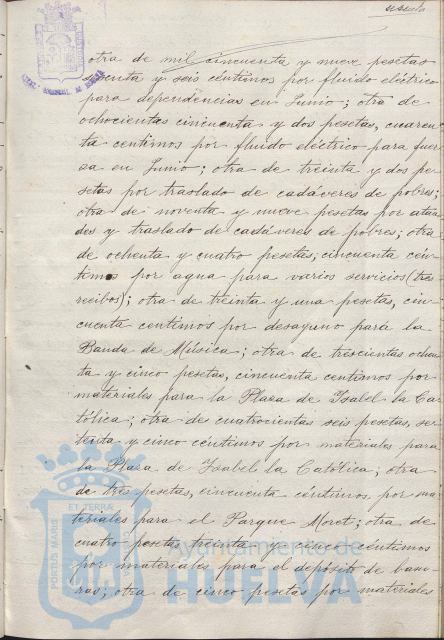 sesenta
otra de mil cincuenta y nueve pesetas
y seis céntimos por fluído eléctrico
para dependencias en Junio; otra de
ochocientas cincuenta y dos pesetas, cuaren
ta centimos por fluído eléctrico para fuer
za en Junio; otra de treinta y dos pe
setas por traslado de cadáveres de pobres;
otra de noventa y nueve pesetas por ataú
des y traslado de cadáveres de pobres; otra
de ochenta y cuatro pesetas, cincuenta cén
timos por agua para varios servicios (tres
recibos); otra de treinta y una pesetas, cin
cuenta centimos por desayuno para la
Banda de Música; otra de trescientas ochen
ta y cinco pesetas, cincuenta centimos por
materiales para la Plaza de Isabel la Ca
tólica; otra de cuatrocientas seis pesetas, se
tenta y cinco centimos por materiales para
la Plaza de Isabel la Católica; otra
de tres pesetas, cincuenta céntimos por ma
teriales para el Parque Moret; otra de
cuatro pesetas treinta y cinco céntimos
por materiales para el depósito de basu
ras; otra de cinco pesetas por materiales
PORTUS MARIS
ET TERRÆ
Ayuntamiento de
HUELVA